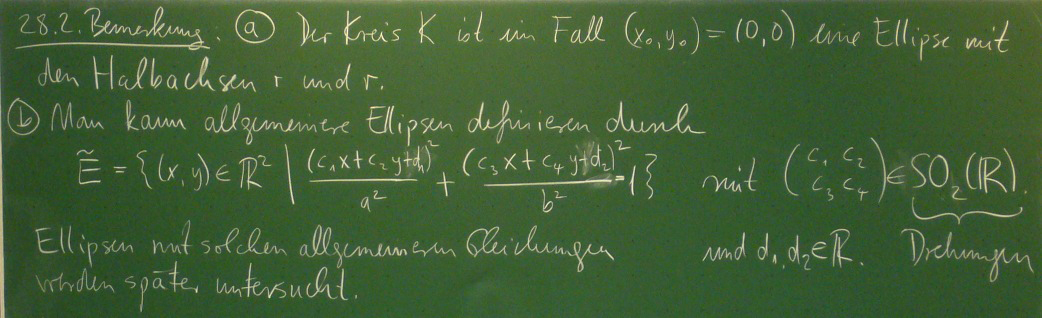 28.2. Bemerkung: ⓐ Der Kreis K ist im Fall (x₀,y₀) = (0,0) eine Ellipse mit
den Halbachsen r und r.
ⓑ Man kann allgemeinere Ellipsen definieren durch
Ẽ = {(x,y) ∈ ℝ² | (c₁x+c₂y+d₁)²/a² + (c₃x+c₄y+d₂)²/b² = 1} mit (c₁ c₂ / c₃ c₄) ∈ SO₂(ℝ).
Ellipsen mit solchen allgemeineren Gleichungen und d₁,d₂∈ℝ. Drehungen
werden später untersucht.